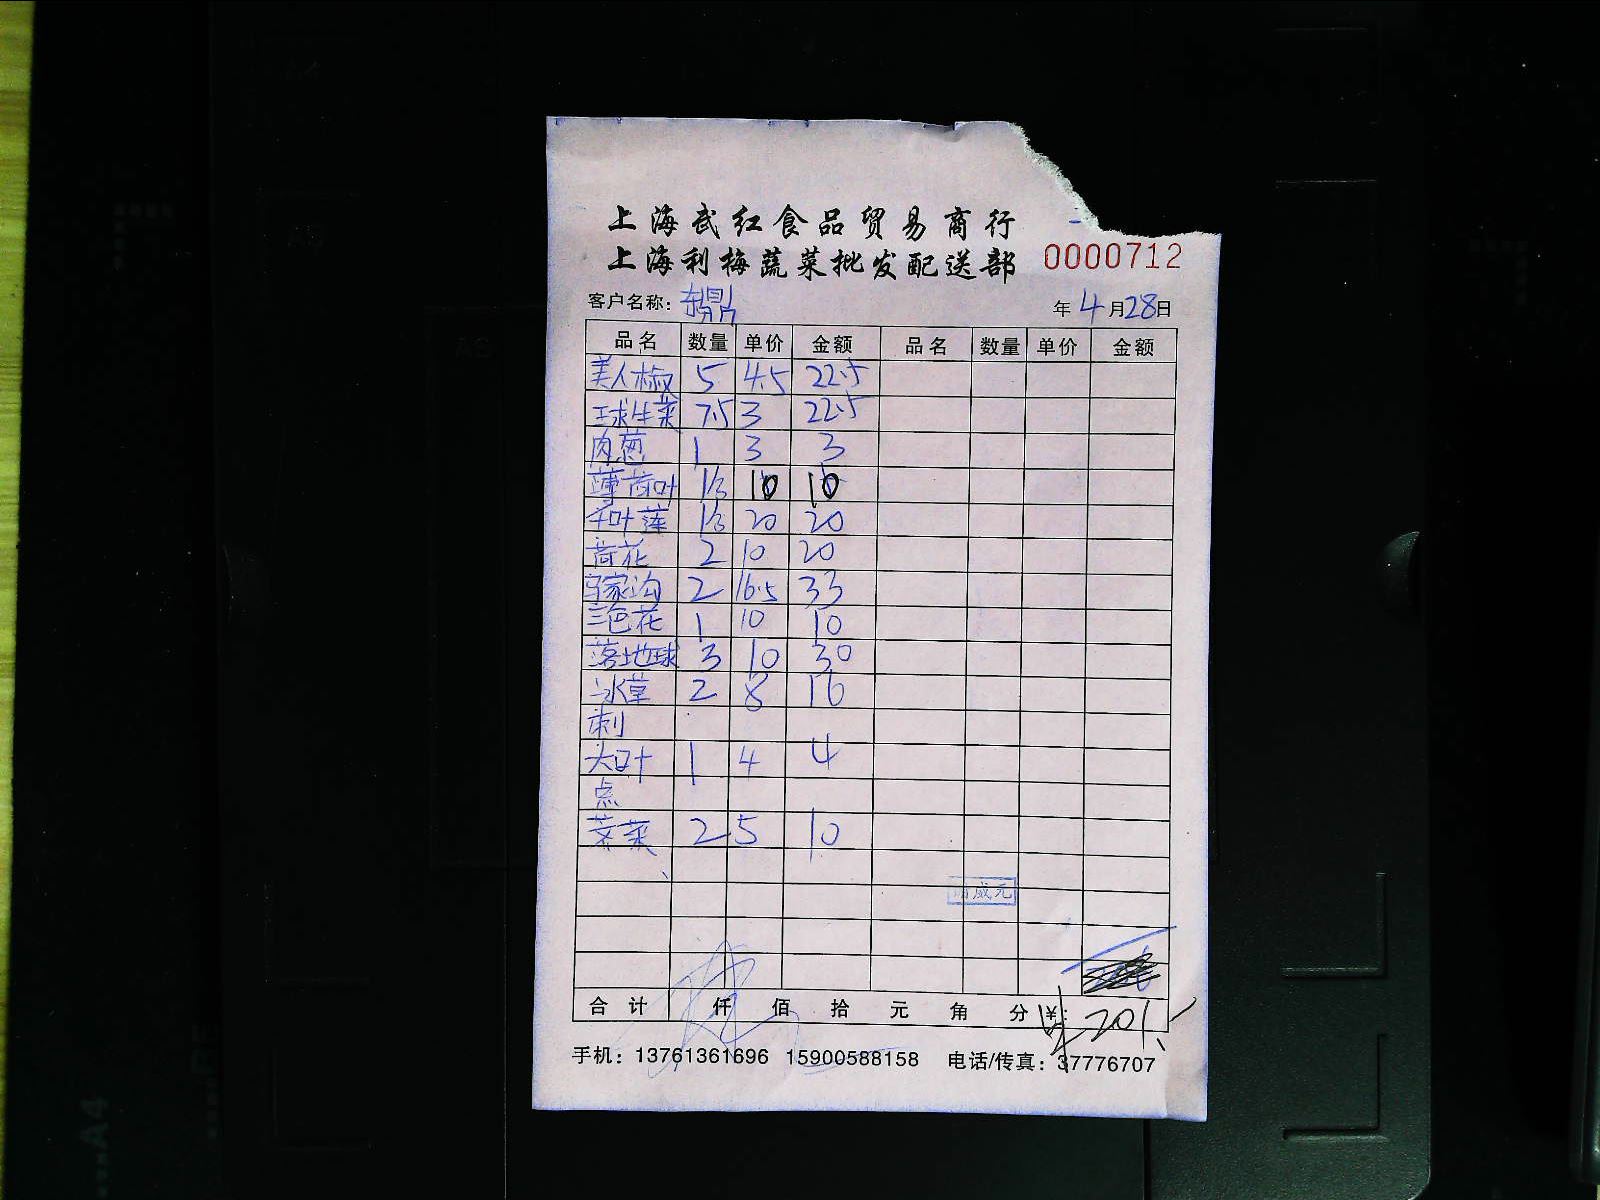 上海武红食品贸易商行
上海利梅蔬菜批发配送部 0000712
客户名称: 东鼎 年 4 月 28 日
品名 数量 单价 金额 品名 数量 单价 金额
美人椒 5 4.5 22.5
球生菜 7.5 3 22.5
肉葱 1 3 3
薄荷叶 1/3 10 10
千叶莲 1/3 20 20
荷花 2 10 20
马家沟 2 16.5 33
三色花 1 10 10
落地球 3 10 30
冰草 2 8 16
刺
大叶 1 4 4
点
茭菜 2 5 10
合计 仟 佰 拾 元 角 分 ¥: 201.
手机: 13761361696 15900588158 电话/传真: 37776707